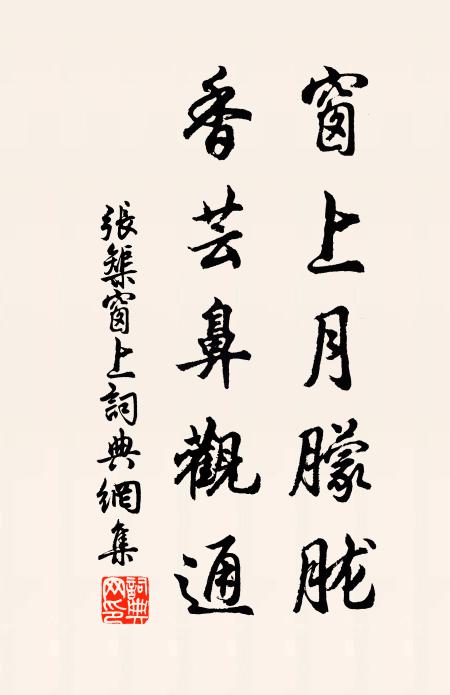 窗上月朦胧
香芸鼻觀通
張榘窗上詞典網集
詞典网印